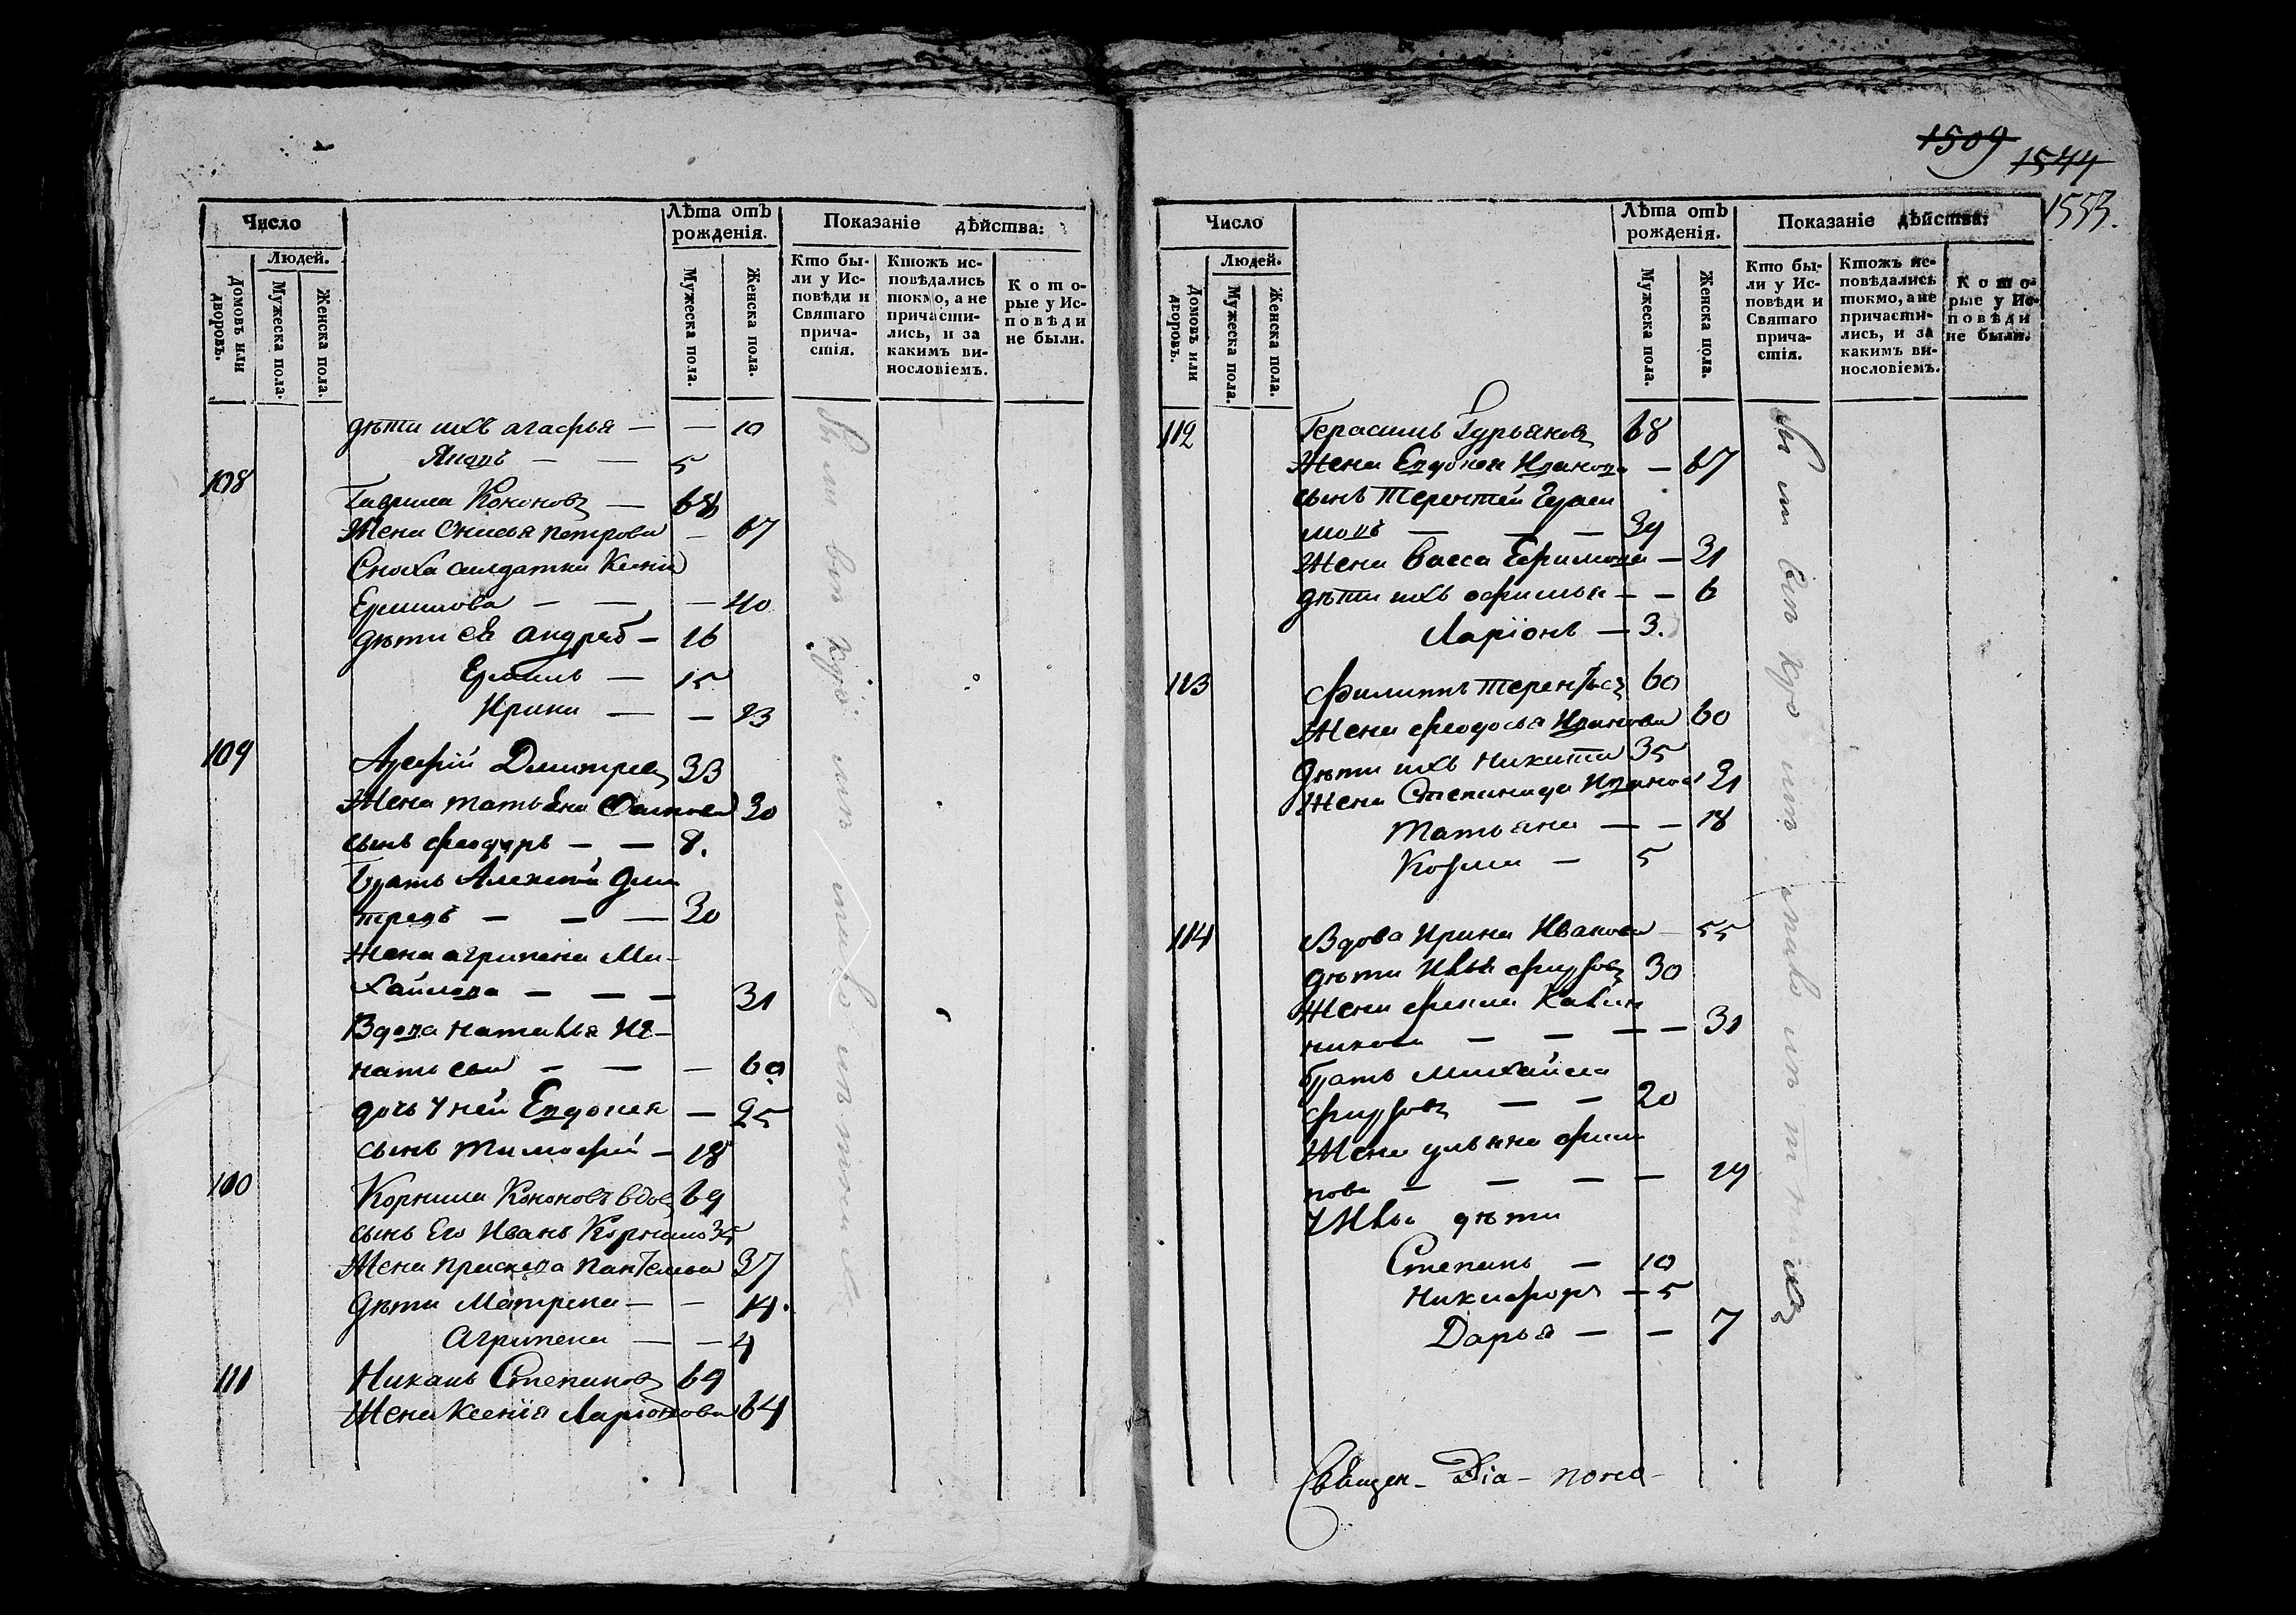 Число
Людей.
Домовъ или дворовъ.
Мужеска пола.
Женска пола.
Лѣта отъ рожденія.
Мужеска пола.
Женска пола.
Показаніе дѣйства:
Кто бы-
ли у Ис-
повѣди и
Святаго
прича-
стія.
Ктожъ ис-
повѣдались
токмо, а не
причасти-
лись, и за
какимъ ви-
нословіемъ.
Кото-
рые у Ис-
повѣди
не были.
дѣти ихъ агафья — — 10
— — 5
108
Гаврила Кононовъ — 68
Жена Петрова — 67
Сноха салдатка Ксенія
Ермилова — — — 40
дѣти ея андрей — 16
Ермилъ — 15
Ирина — — 23
109
Дмитрев 33
Жена татьяна 30
сынъ феодоръ — — 8.
Братъ Алексей дми
тревъ — — — 30
Жена агрипена Ми-
хайлова — — — 31
Вдова наталья Иг-
натьева — — — 60
дочь у ней Евдокея — 25
сынъ тимофей — 18
110
Корнила Кононовъ вдов 69
сынъ Его Иванъ Корнило 35
Жена прасковa 37
дѣти Матрена — — 14.
агрипена — — 4
111
Степановъ 69
Жена Ксенія Ларіонова 64
1509
1544
1553.
Число
Людей.
Домовъ или дворовъ.
Мужеска пола.
Женска пола.
Лѣта отъ рожденія.
Мужеска пола.
Женска пола.
Показаніе дѣйства:
Кто бы-
ли у Ис-
повѣди и
Святаго
прича-
стія.
Ктожъ ис-
повѣдались
токмо, а не
причасти-
лись, и за
какимъ ви-
нословіемъ.
Кото-
рые у Ис-
повѣди
не были.
112
Герасимъ Гурьяновъ 68
Жена Евдокея Иванова — 67
сынъ Терентей Гераси
мовъ — — — 39
Жена Васса Ефимова — 31
дѣти ихъ офимья — — 6
Ларіонъ — 3.
113
Филиппъ Терентьев 60
Жена феодосья Иванова 60
дѣти ихъ Никита 35
Жена Степанида Иванова 31
Татьяна — — 18
Козма — 5
114
Вдова Ирина Иванова — 55
дѣти Илья фирсовъ 30
Жена Калин
никова — — — — 31
братъ михайла
фирсовъ — — 20
Жена ульяна фили
пова — — — — 19
У Ильи дѣти
Степанъ — 10
Никифоръ — 5
Дарья — — 7
Священ- Діа- поно-